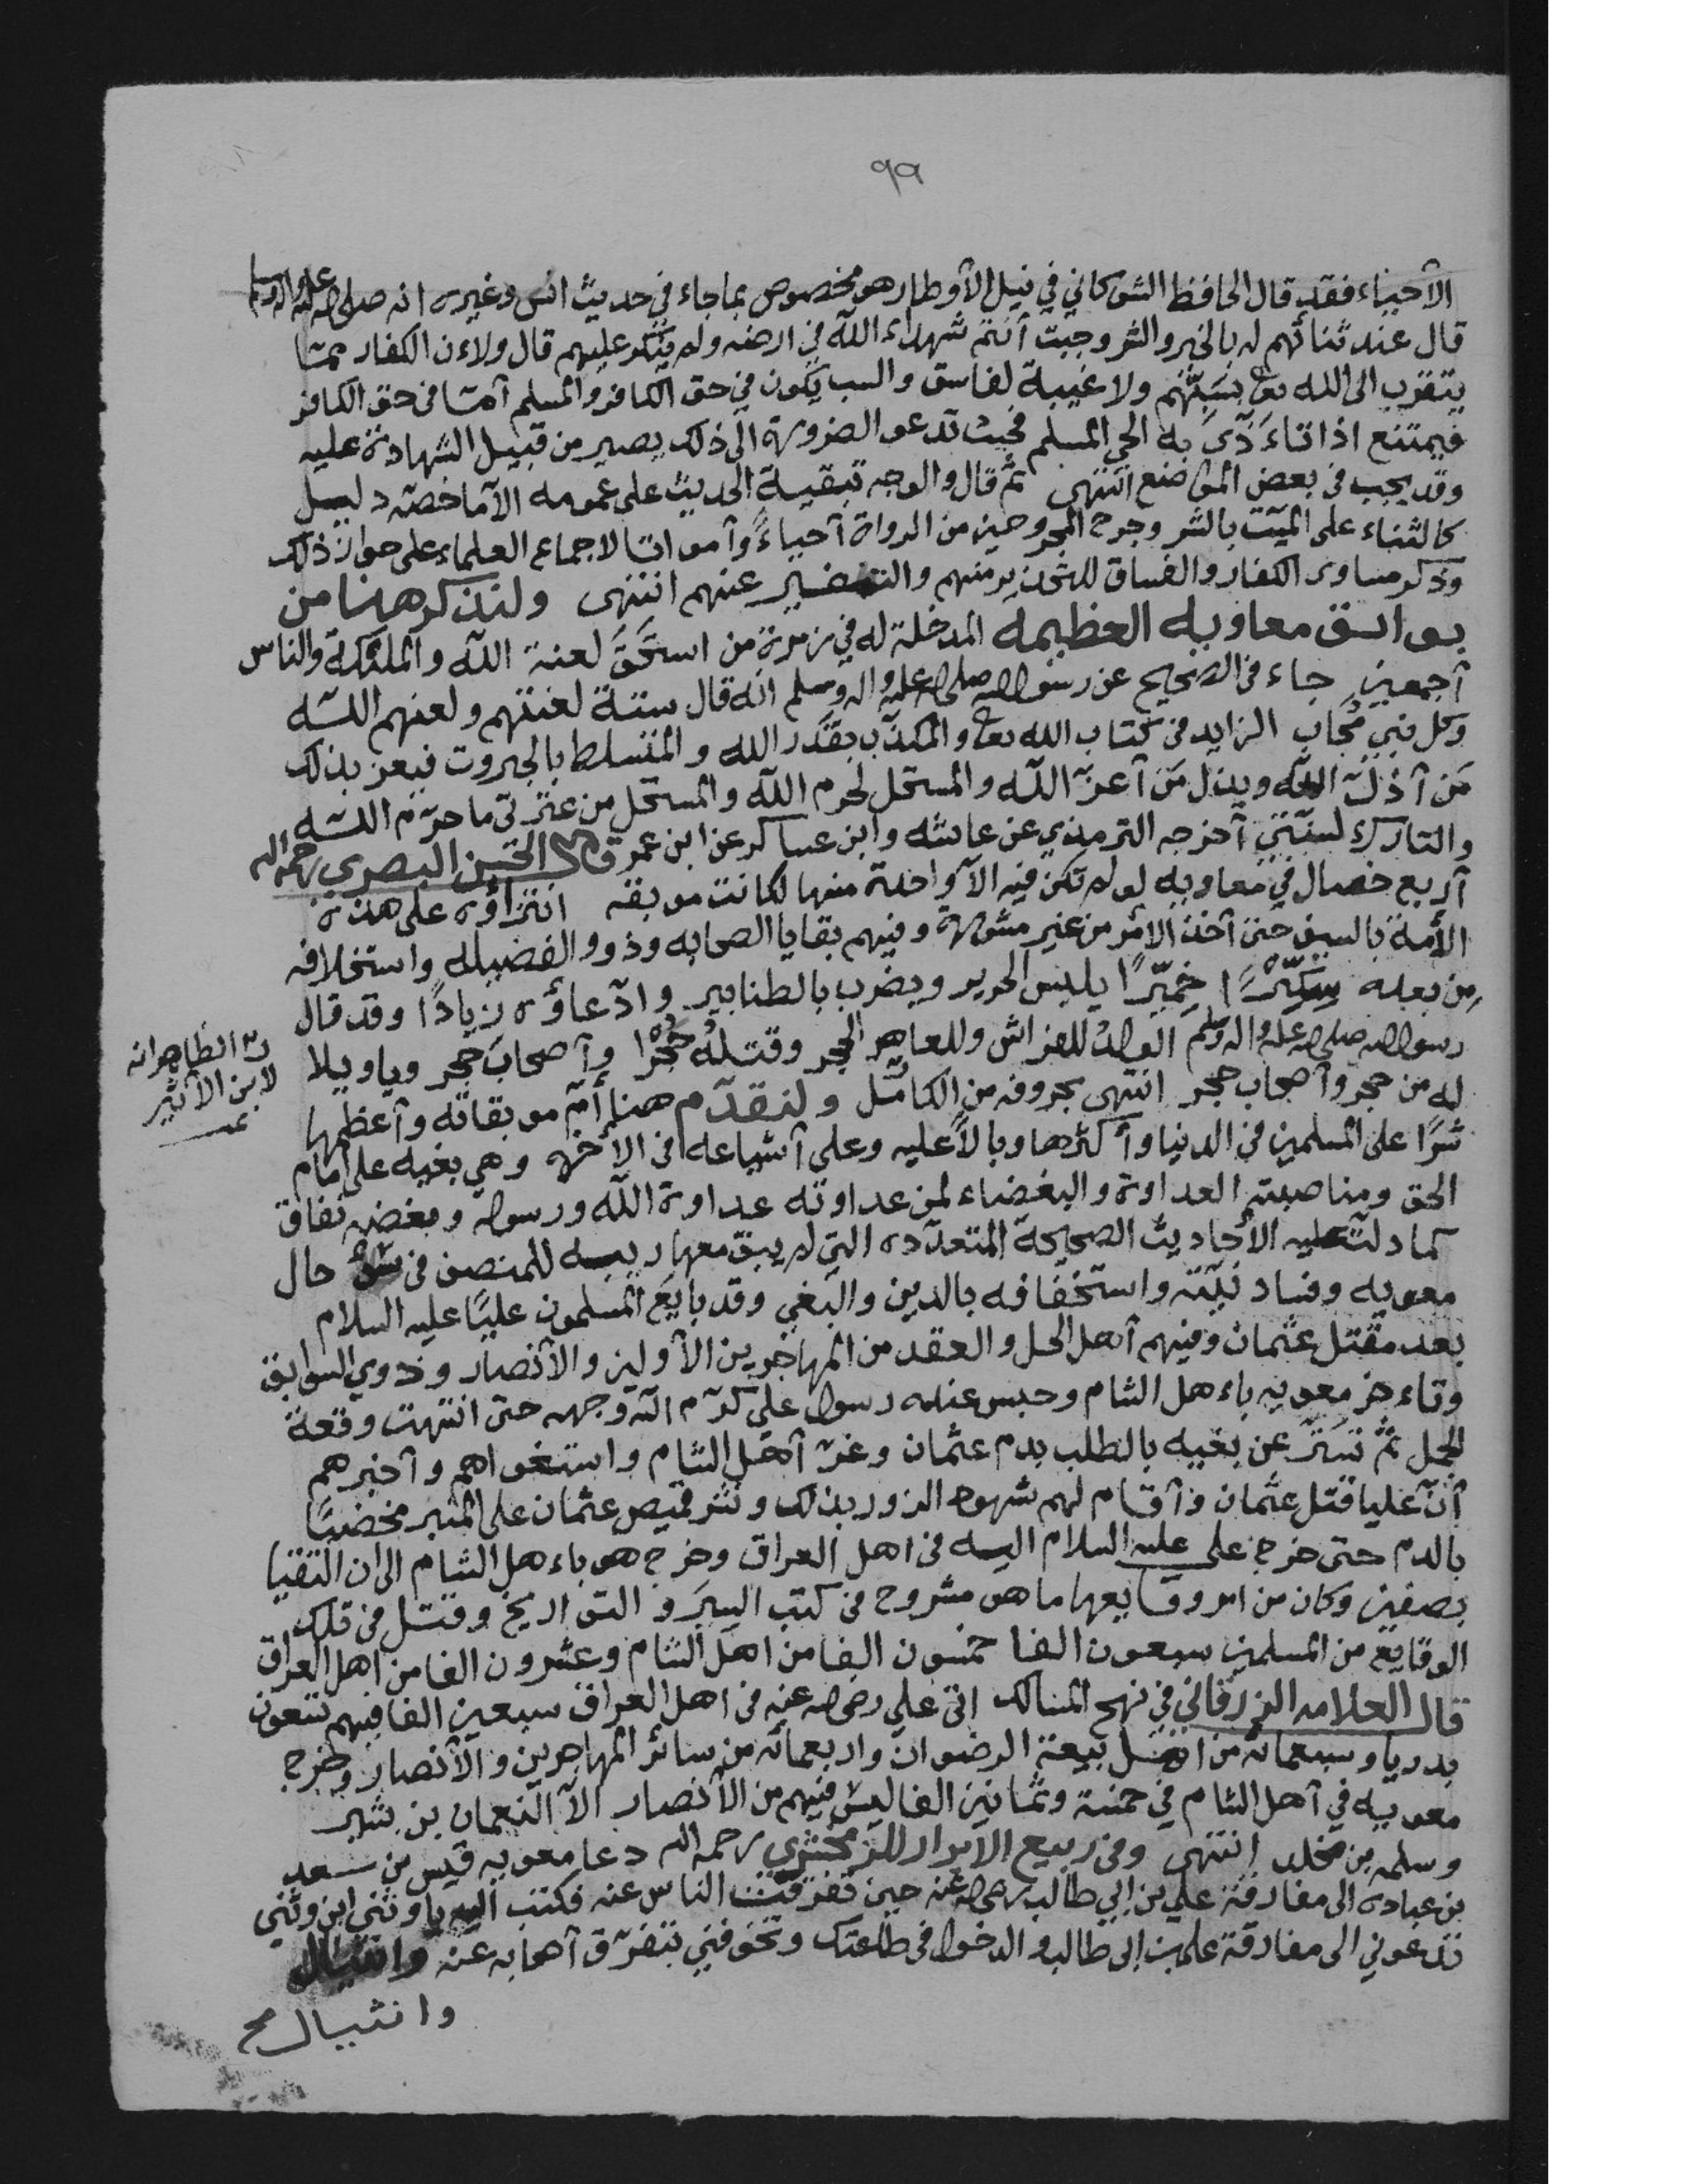 ٩٩
الأحياء فقد قال الحافظ الشوكاني في نيل الأوطار هو مخصوص بما جاء في حديث انس وغيره انه صلى الله عليه واله وسلم
قال عند ثنائهم له بالخير والشر وجبت أنتم شهداء الله في ارضه ولم ينكر عليهم قال ولاءن الكفار ممّا
يتقرب الى الله تعا بسَبِّهم ولا غيبة لفاسق والسب يكون في حق الكافر والمسلم أمّا في حق الكافر
فيمتنع اذا تاءَذّىَ به الحي المسلم فحيث تدعو الضرورة الى ذلك يصير من قبيل الشهادة عليه
وقد يجب في بعض المواضع انتهى ثم قال والوجه تبقية الحديث على عمومه الآما خصّه دليل
كالثناء على الميّت بالشر وجرح المجروحين من الرواة أحياءً وأمواتا لاجماع العلماء على جواز ذلك
وذكر مساوى الكفار والفساق للتحذير منهم والتنفير عنهم انتهى ولنذكر هنا من
بوائق معاويه العظيمه المدخلة له في زمرة من استحَقَّ لعنة الله والملئكة والناس
أجمعين جاء في الصحيح عن رسول الله صلى الله عليه واله وسلم انه قال ستة لعنتهم ولعنهم الله
وكل نبيٍ مُجَابٍ الزايد في كتاب الله تعا والمكذّب بقَدَر الله والمتسلط بالجبروت فيعز بذلك
مَن أذلّ الله ويذل مَن أعزّ الله والمستحل لحرم الله والمستحل من عترتى ما حرّم الله
والتارك لسنّتي أخرجه الترمذي عن عائشه وابن عساكر عن ابن عمر قال الحسن البصري رحمه الله
أربع خصال في معاويه لو لم تكن فيه الآ واحدة منها لكانت موبقه انتزاؤه على هذه
الأمة بالسيف حتى أخذ الامر من غير مشورة وفيهم بقايا الصحابه وذوو الفضيله واستخلافه
مِن بعده سِكِّيْرًا خِمّيرًا يلبس الحرير ويضرب بالطنابير وادّعاؤه زيادًا وقد قال
رسول الله صلى الله عليه واله وسلم الولدُ للفراش وللعاهر الحجر وقتلُه حُجْرًا وأصحابَ حجر وياويلا
ت الظاهر انه
لابن الأثير
له من حجر وأصحاب حجر انتهى بحروفه من الكامل ولنقدّم هنا أمّ موبقاته وأعظمها
شرًا على المسلمين في الدنيا وأكثرها وبالاً عليه وعلى أشياعه في الاخره وهي بغيه على امام
الحق ومناصبته العداوة والبغضاء لمن عداوته عداوة الله ورسوله وبغضه نفاق
كما دلّت عليه الأحاديث الصحيحة المتعدّده التي لم يبق معها ريبه للمنصف في سُوء حال
معويه وفساد نيّته واستخفافه بالدين والبغي وقد بايَعَ المسلمون عليًا عليه السلام
بعد مقتل عثمان وفيهم أهل الحل والعقد من المهاجرين الأولين والأنصار وذوي السوابق
وتاءخر معويه باءهل الشام وحبس عنده رسول علي كرّم الله وجهه حتى انتهت وقعة
الجمل ثمّ تسَترّ عن بغيه بالطلب بدم عثمان وغرّ أهل الشام واستغواهم وأخبرهم
أنّ عليا قتل عثمان وأقام لهم شهود الزور بذلك ونشر قميص عثمان على المنبر مخضبًا
بالدم حتى خرج علي عليه السلام اليه في اهل العراق وخرج هو باءهل الشام الى ان التقيا
بصفين وكان من امر وقايعها ما هو مشروح في كتب السِيَر والتواريخ وقتل في تلك
الوقايع من المسلمين سبعون الفا خمسون الفا من اهل الشام وعشرون الفا من اهل العراق
قال العلامه الزرقاني في نهج المسالك اتى علي رضى الله عنه في اهل العراق سبعين الفا فيهم تسعون
بدريا وسبعمائه من اهل بيعة الرضوان واربعمائه من سائر المهاجرين والأنصار وخرج
معويه في أهل الشام في خمسة وثمانين الفا ليس فيهم من الأنصار الآ النعمان بن بشير
وسلمه بن مخلد انتهى وفى ربيع الابرار للزمخشري رحمه الله دعا معويه قيس بن سعد
بن عباده الى مفارقة علي بن ابي طالب رضى الله عنه حين تفرقت الناس عنه فكتب اليه يا وثني ابن وثني
تدعوني الى مفارقة علي بن ابى طالب والدخول في طاعتك وتخوفني بتفرّق أصحابه عنه وانثيال
وانثيال صح